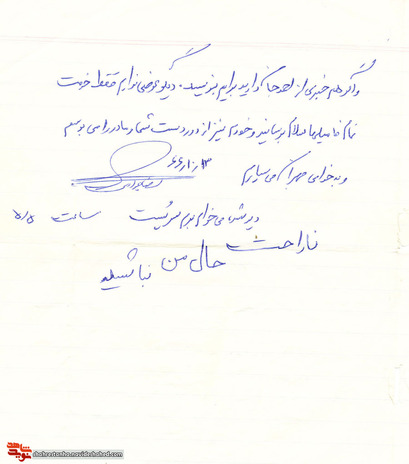 و اگر هم خبری از احدجا دارید برایم بنویسید. دیگر عرضی ندارم فقط خدمت
تمام فامیل‌ها سلام برسانید و خودم نیز از دور دست شما مادر را می بوسم
و به خدای مهربان می سپارم
۶۶/۱۰/۱۳
دیرش می خواهم بروم پست ساعت ۵/۵
ناراحت حال من نباشید
shohrestanha.navideshahed.com